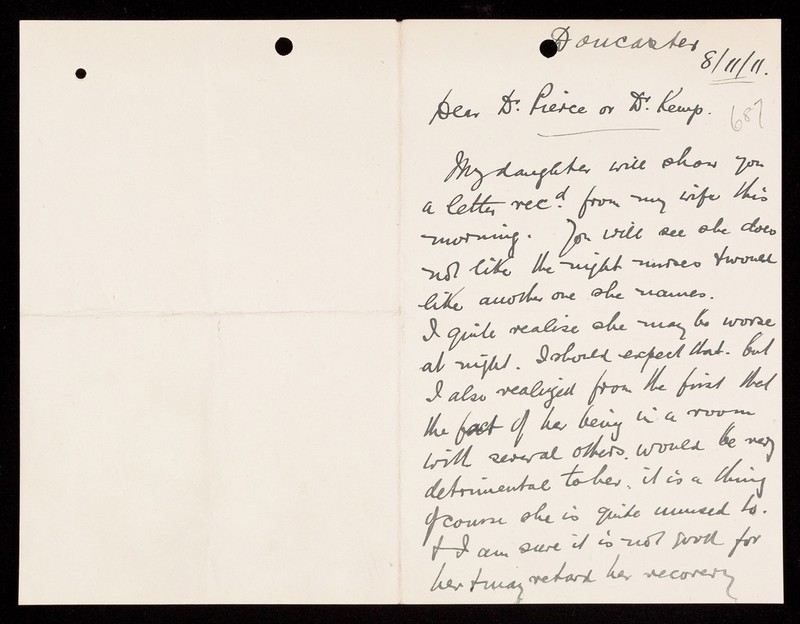 Doncaster
8/11/11.
Dear Dr. Pierce or Dr. Kemp.
687
My daughter will show you
a letter recd. from my wife this
morning. You will see she does
not like the night nurses & would
like another one she names.
I quite realise she may be worse
at night. I should expect that. but
I also realized from the first that
the fact of her being in a room
with several others. would be very
detrimental to her. it is a thing
of course she is quite unused to.
& I am sure it is not good for
her & may retard her recovery